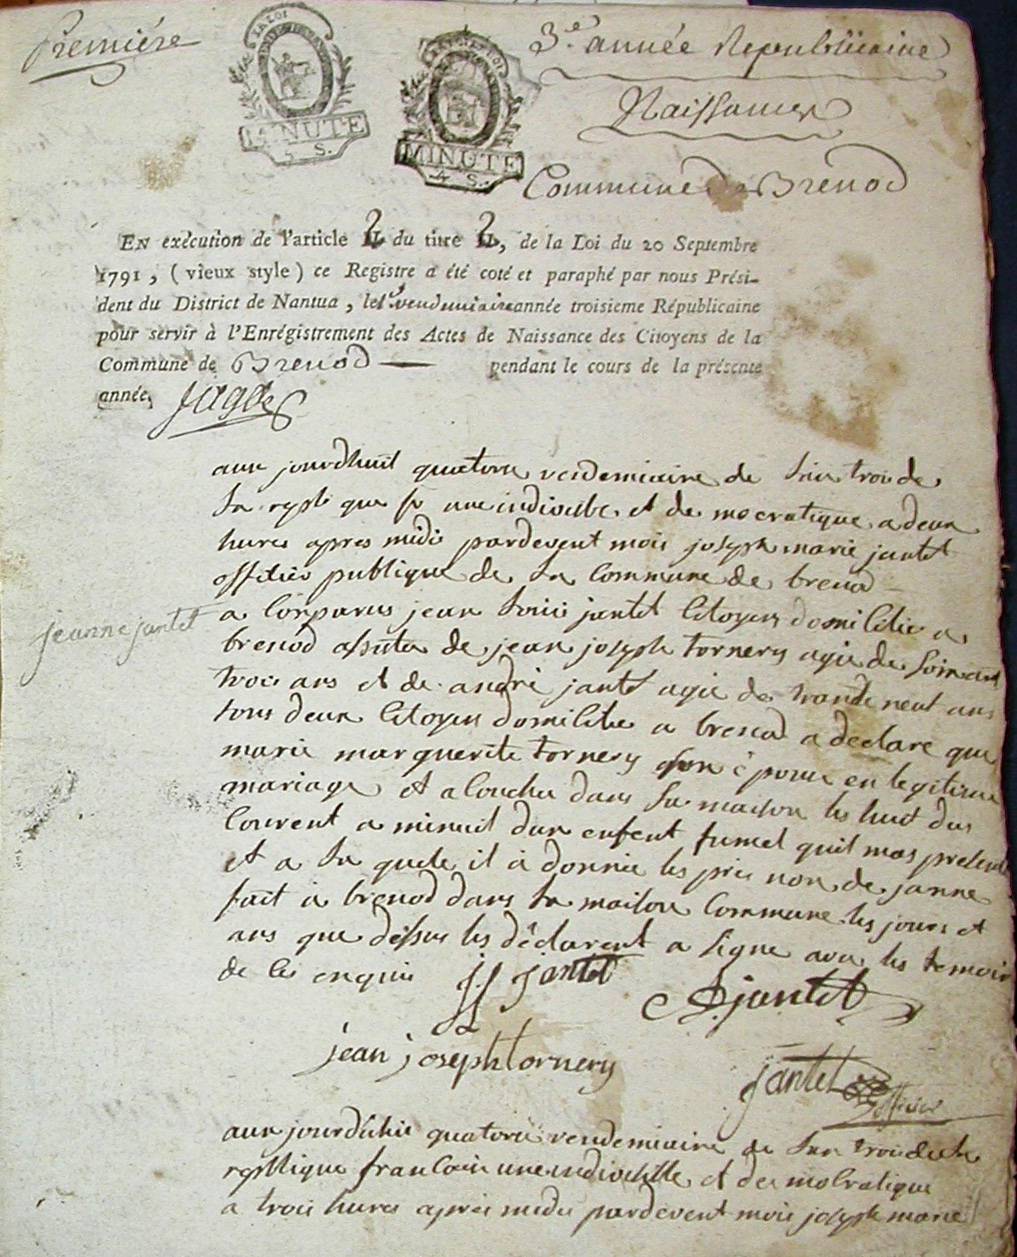 Première
LA LOI
MINUTE
4 S.
LA LOI
MINUTE
4 S.
3.e année Republicaine
Naissances
Commune de Brenod
EN exécution de l'article 2 du titre 2, de la Loi du 20 Septembre
1791, (vieux style) ce Registre a été coté et paraphé par nous Prési-
dent du District de Nantua, le vendemiaire année troisieme Républicaine
pour servir à l'Enrégistrement des Actes de Naissance des Citoyens de la
Commune de Brenod — pendant le cours de la présente
année.
jeanne jantet
aux jourdhuit quatorze vendemiaire de lan trois de
la une indivisible et de mocratique a deux
hures apres midi pardevent mois joseph marie jantet
offitier publique de la Commune de brenod
a Conparus jean Louis jantet Citoyen domicilie a
brenod assiste de jean joseph tornery agie de soixante
trois ans et de andre jantet agie de trante neuf ans
tous deux Citoyen domicilie a brenod a declare que
marie marguerite tornery son épouse en legitime
mariage et a Couchee dans sa maison les huit dus
Courent a minuit dun enfent fumel quil mas presente
et a la quele il a donnée les pres non de janne
fait a brenod dans la maison Commune les jours et
ans que dessus les declarent a signe avec les temoin
de les enquis jl jantet
jantet
jean joseph tornery
jantet officier
aux jourdhui quatorze vendemiaire de lan trois de la
francaise une indivisible et democratique
a trois hures apres midi pardevent mois joseph marie